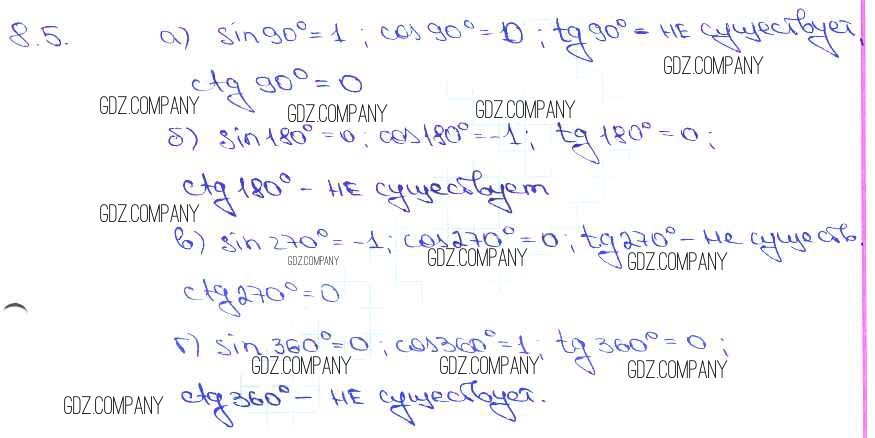 8.5. а) sin 90° = 1 ; cos 90° = 0 ; tg 90° - не существует,
GDZ.COMPANY
ctg 90° = 0
GDZ.COMPANY GDZ.COMPANY GDZ.COMPANY
б) sin 180° = 0 ; cos 180° = -1 ; tg 180° = 0 ;
ctg 180° - не существует
GDZ.COMPANY
в) sin 270° = -1 ; cos 270° = 0 ; tg 270° - не существ.
GDZ.COMPANY GDZ.COMPANY GDZ.COMPANY
ctg 270° = 0
г) sin 360° = 0 ; cos 360° = 1 ; tg 360° = 0 ;
GDZ.COMPANY GDZ.COMPANY GDZ.COMPANY
GDZ.COMPANY ctg 360° - не существует.